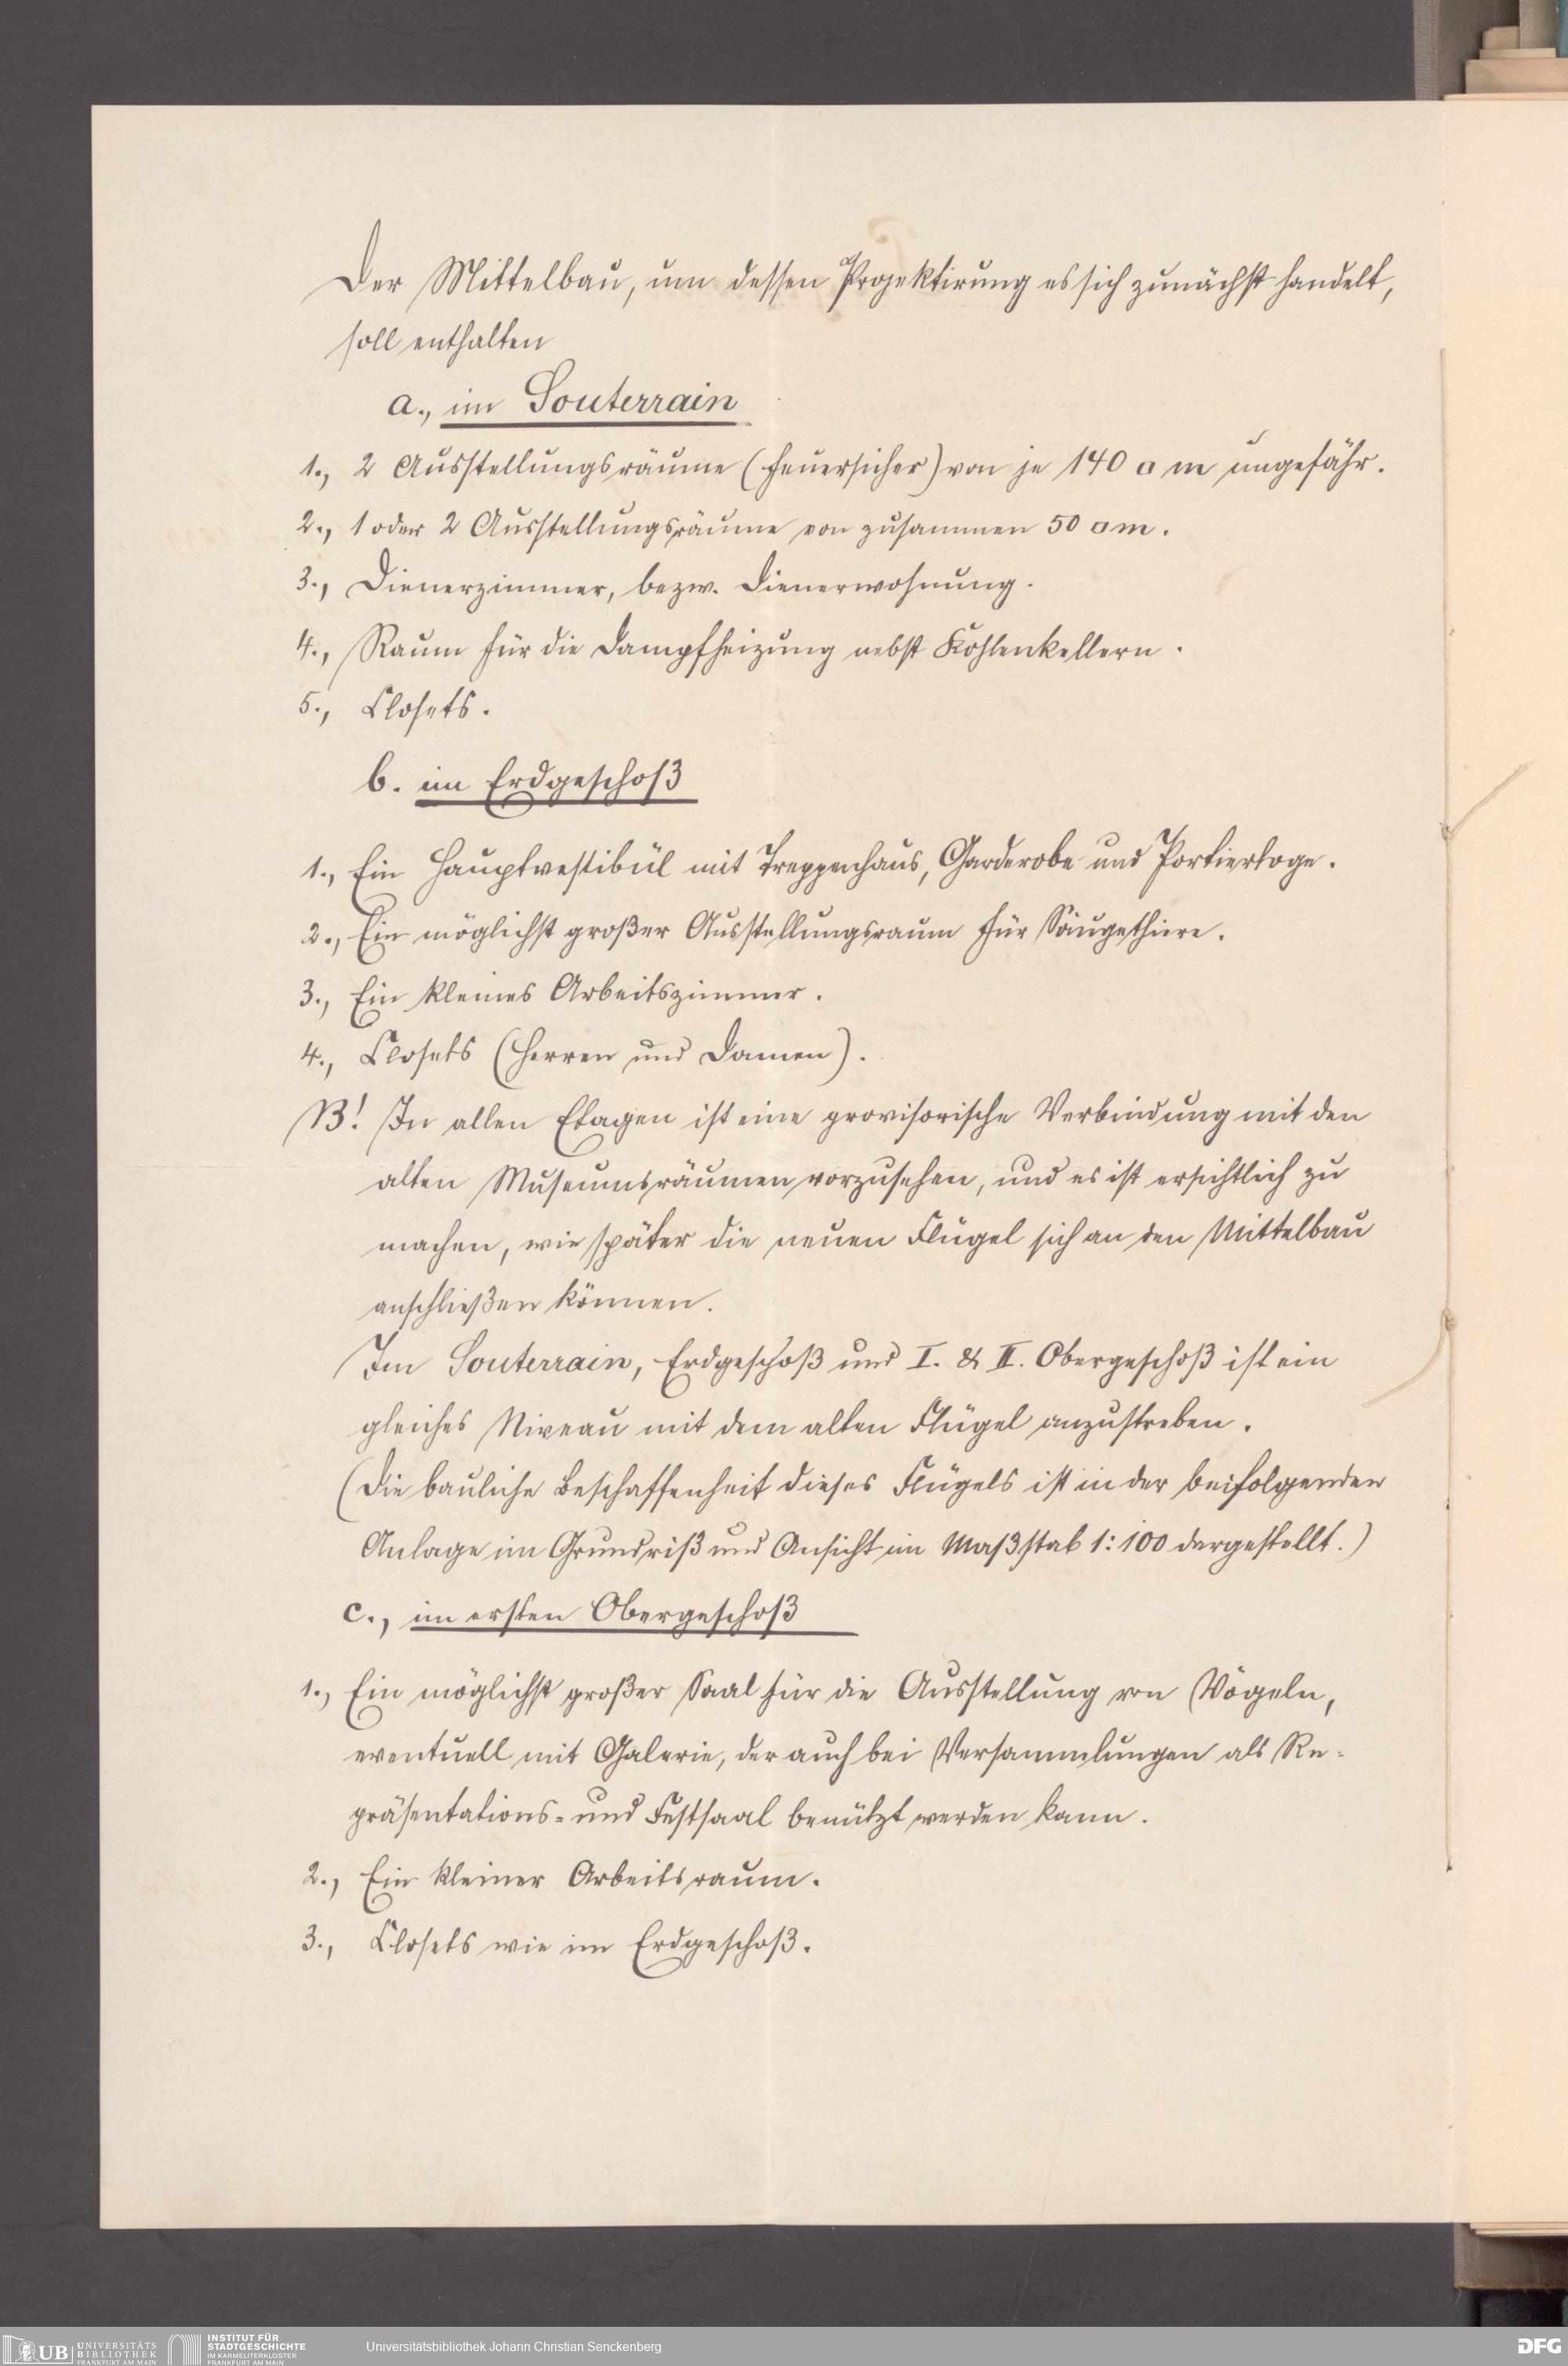 Der Mittelbau, um dessen Projektirung es sich zunächst handelt,
soll enthalten
a., im Souterrain
1., 2 Ausstellungsräume (feuersicher) von je 140 □ m ungefähr.
2., 1 oder 2 Ausstellungsräume von zusammen 50 □ m.
3., Dienerzimmer, bezw. Dienerwohnung.
4., Raum für die Dampfheizung nebst Kohlenkellern.
5., Closets.
b. im Erdgeschoß
1., Ein Hauptvestibül mit Treppenhaus, Garderobe und Portierloge.
2., Ein möglichst großer Ausstellungsraum für Säugethiere.
3., Ein kleines Arbeitszimmer.
4., Closets (Herren und Damen).
NB! In allen Etagen ist eine provisorische Verbindung mit den
alten Museumsräumen vorzusehen, und es ist ersichtlich zu
machen, wie später die neuen Flügel sich an den Mittelbau
anschließen können.
Im Souterrain, Erdgeschoß und I. & II. Obergeschoß ist ein
gleiches Niveau mit dem alten Flügel anzustreben.
(Die bauliche Beschaffenheit dieses Flügels ist in der beifolgenden
Anlage im Grundriß und Ansicht im Maßstab 1:100 dargestellt.)
c., im ersten Obergeschoß
1., Ein möglichst großer Saal für die Ausstellung von Vögeln,
eventuell mit Galerie, der auch bei Versammlungen als Re-
präsentations- und Festsaal benützt werden kann.
2., Ein kleiner Arbeitsraum.
3., Closets wie im Erdgeschoß.
UB UNIVERSITÄTS BIBLIOTHEK FRANKFURT AM MAIN
INSTITUT FÜR STADTGESCHICHTE IM KARMELITERKLOSTER FRANKFURT AM MAIN
Universitätsbibliothek Johann Christian Senckenberg
DFG